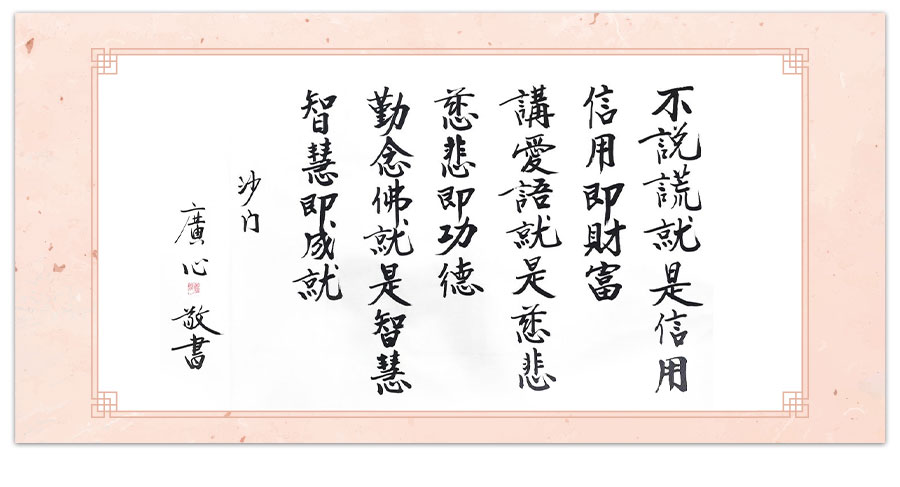 不説謊就是信用
信用即財富
講愛語就是慈悲
慈悲即功德
勤念佛就是智慧
智慧即成就
沙门
廣心
敬書